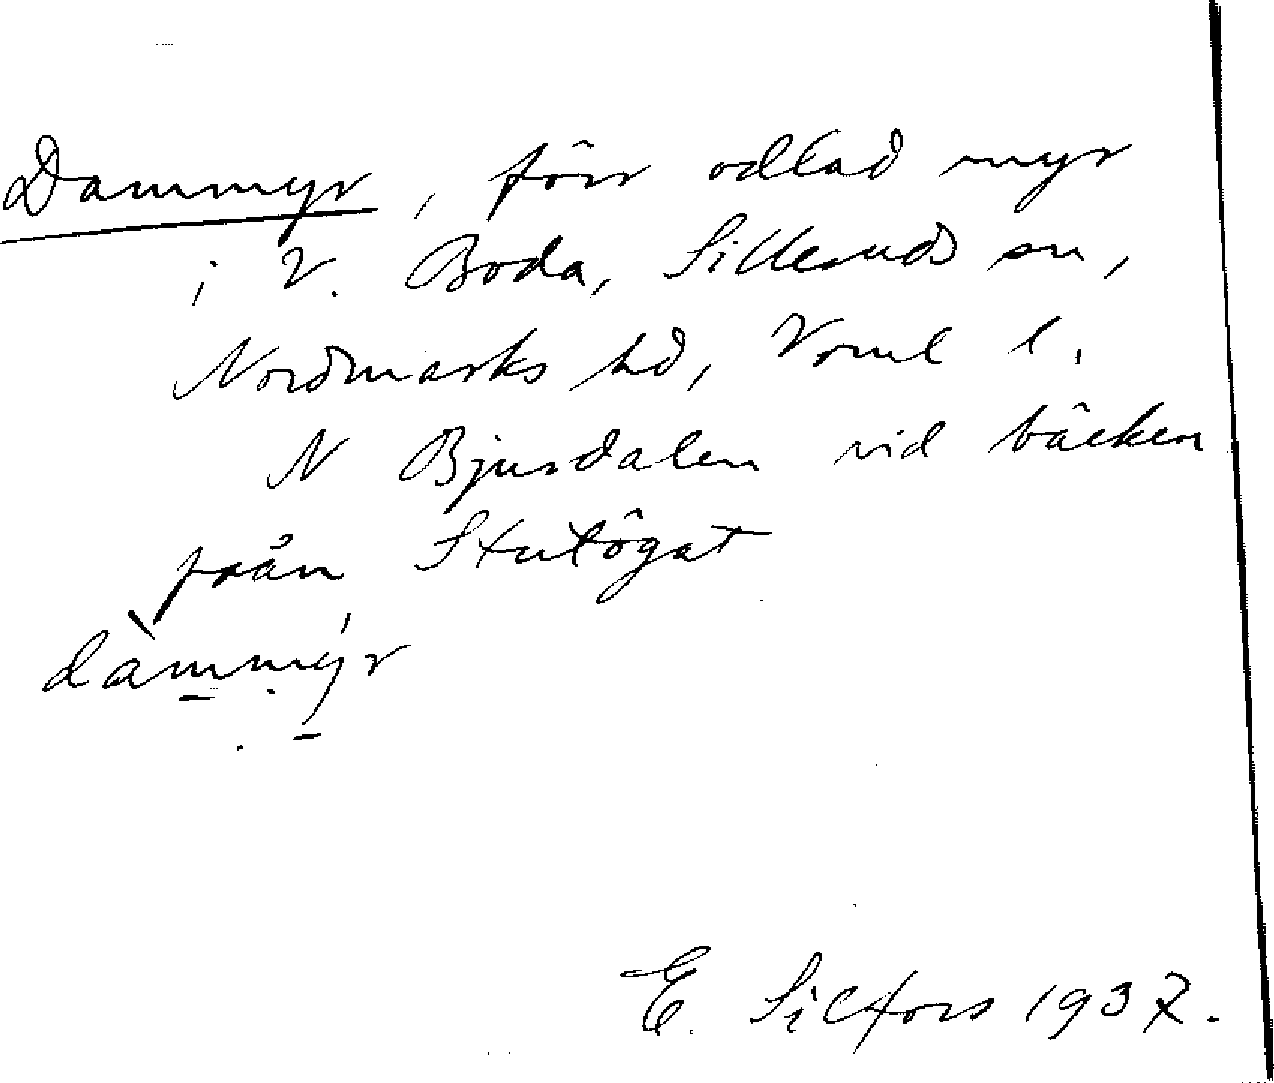 Dammyr, förr odlad myr
i V. Boda, Silleruds sn,
Nordmarks hd, Vrml l.
N Bjursdalen vid bäcken
från Stutögat
dàmmýr
E. Silfors 1937.